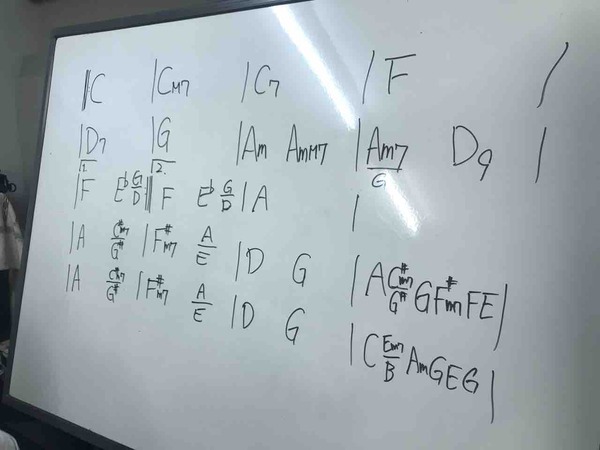 ||C |CM7 |C7 |F |
|D7 |G |Am AmM7 |Am7/G D9 |
1. 2.
|F E♭ G/D || F E♭ G/D |A |
|A C#m7/G# |F#m7 A/E |D G |A C#m7/G# G F#m7 F E|
|A C#m7/G# |F#m7 A/E |D G |C Em7/B Am G E G|